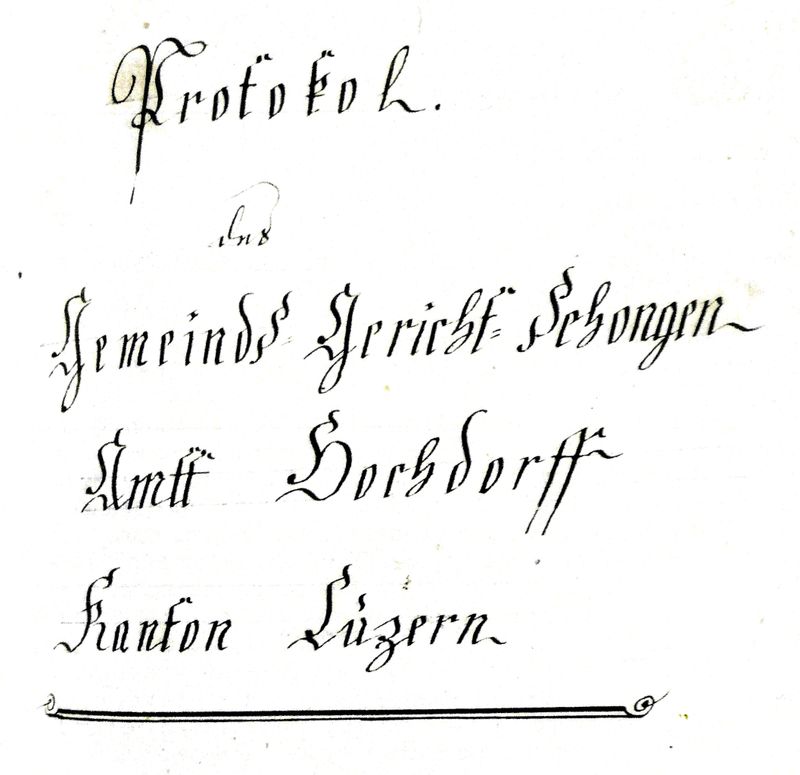 Protokol.
des
Gemeinds- Gericht- Schongen
Amtt Hochdorff
Kanton Luzern